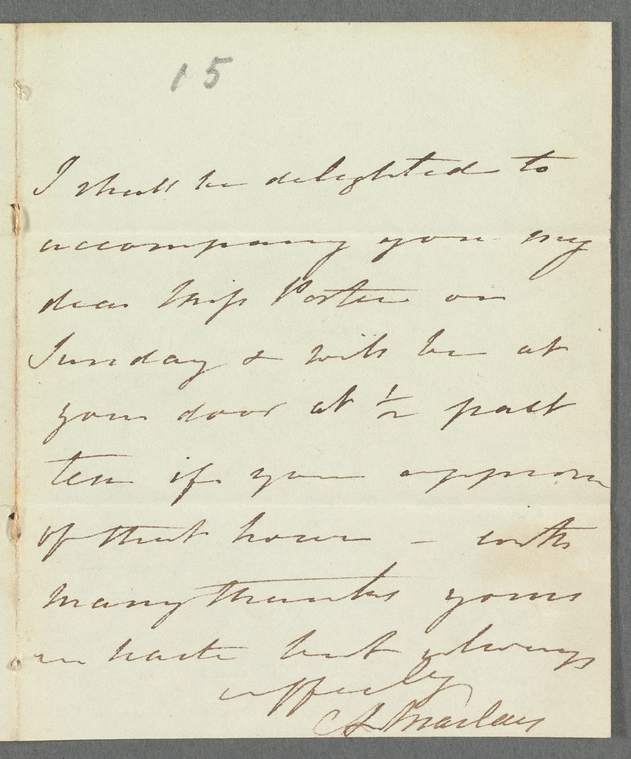 15
I shall be delighted to
accompany you my
dear Miss Porter on
Sunday & will be at
your door at 1/2 past
ten if you approve
of that hour – with
many thanks yours
in haste but always
affecly